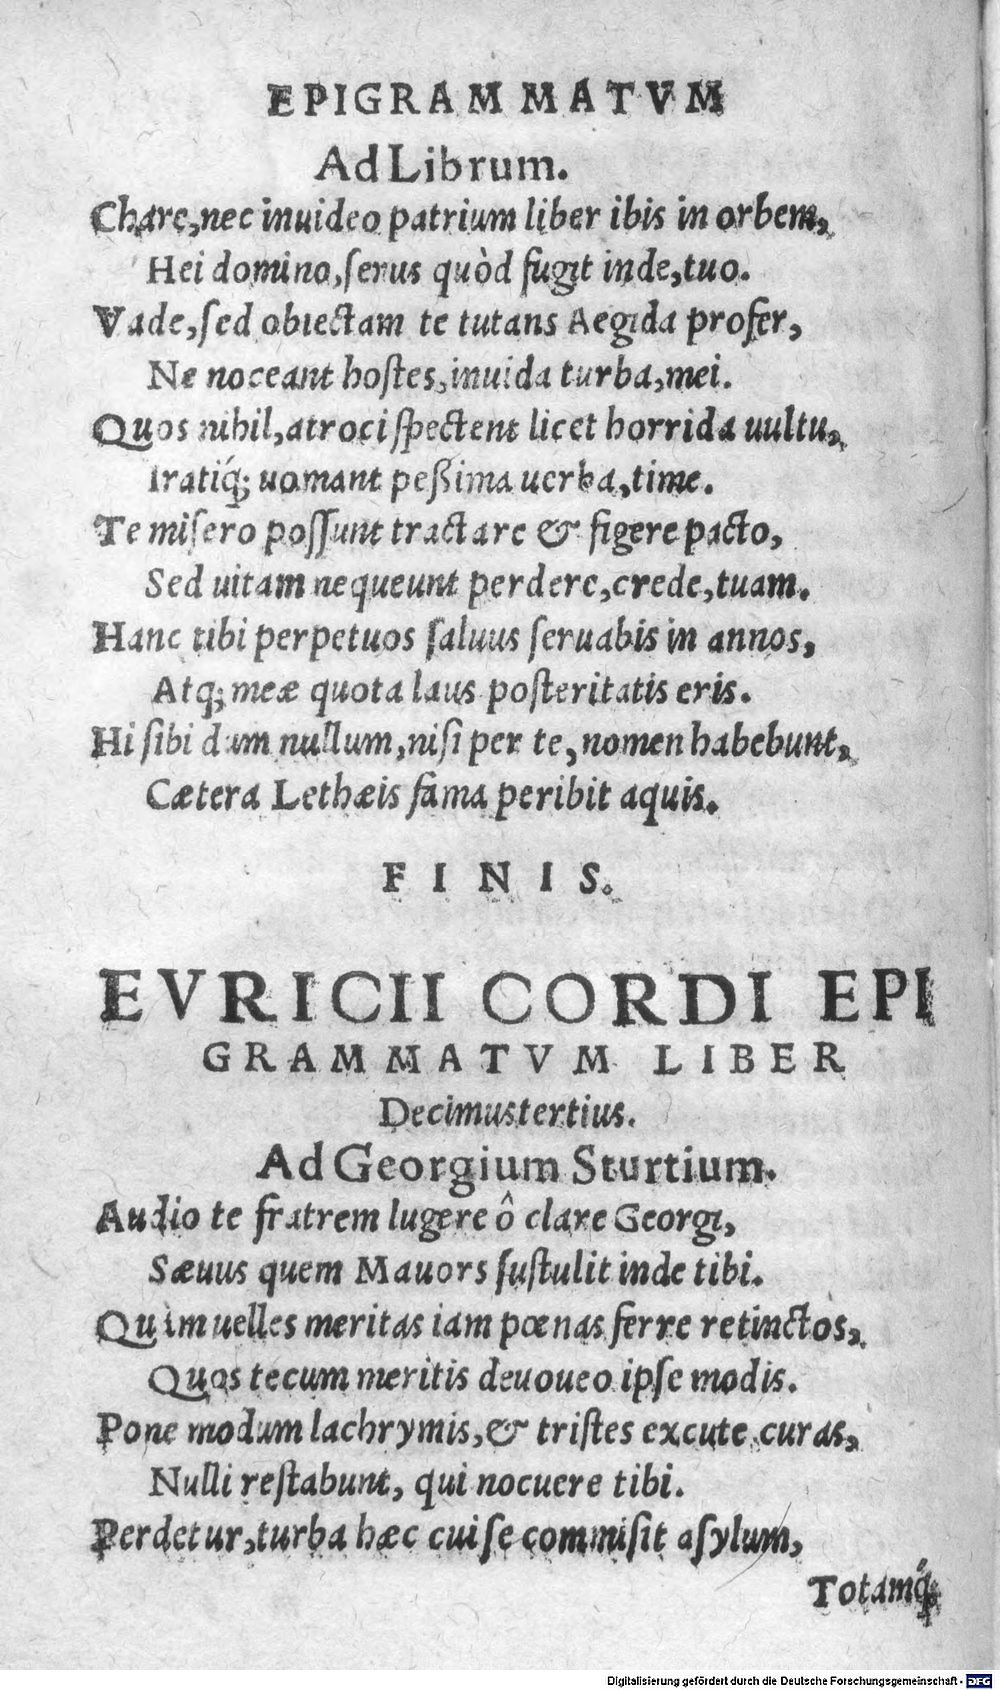 EPIGRAMMATVM
Ad Librum.
Chare, nec inuideo patrium liber ibis in orbem,
Hei domino, serus quòd fugit inde, tuo.
Vade, sed obiectam te tutans Aegida profer,
Ne noceant hostes, inuida turba, mei.
Quos nihil, atroci spectent licet horrida uultu,
Iratiq́; uomant peßima uerba, time.
Te misero possunt tractare & figere pacto,
Sed uitam nequeunt perdere, crede, tuam.
Hanc tibi perpetuos saluus seruabis in annos,
Atq; meæ quota laus posteritatis eris.
Hi sibi dum nullum, nisi per te, nomen habebunt,
Cætera Lethæis fama peribit aquis.
FINIS.
EVRICII CORDI EPI
GRAMMATVM LIBER
Decimustertius.
Ad Georgium Sturtium.
Audio te fratrem lugere ô clare Georgi,
Sæuus quem Mauors sustulit inde tibi.
Quàm uelles meritas iam pœnas ferre retinctos,
Quos tecum meritis deuoueo ipse modis.
Pone modum lachrymis, & tristes excute curas,
Nulli restabunt, qui nocuere tibi.
Perdetur, turba hæc cui se commisit asylum,
Totamq́;
Digitalisierung gefördert durch die Deutsche Forschungsgemeinschaft - DFG